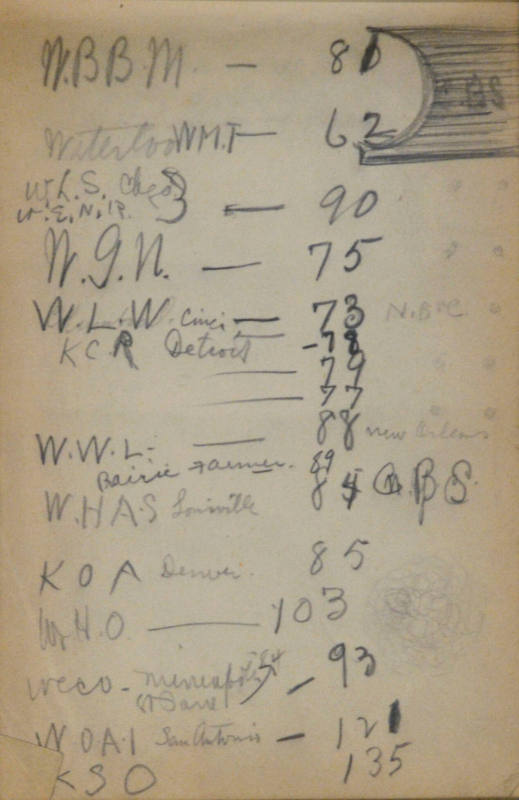 W.B.B.M. — 80
Waterloo WMT — 62
W.L.S. Chego
W.E.N.R. — 90
W.G.N. — 75
W.L.W. Cinci, — 73 N.B.C.
KCR Detroit — 78
— 79
— 77
W.W.L. — 88 new Orleans
Pairie Farmer. 89
W.HAS Louisville 84 C.B.S.
KOA Denver. 85
W.H.O. — 103
WCCO - Minneapolis St Paul — 93
WOAI San Antonio — 121
KSO 135